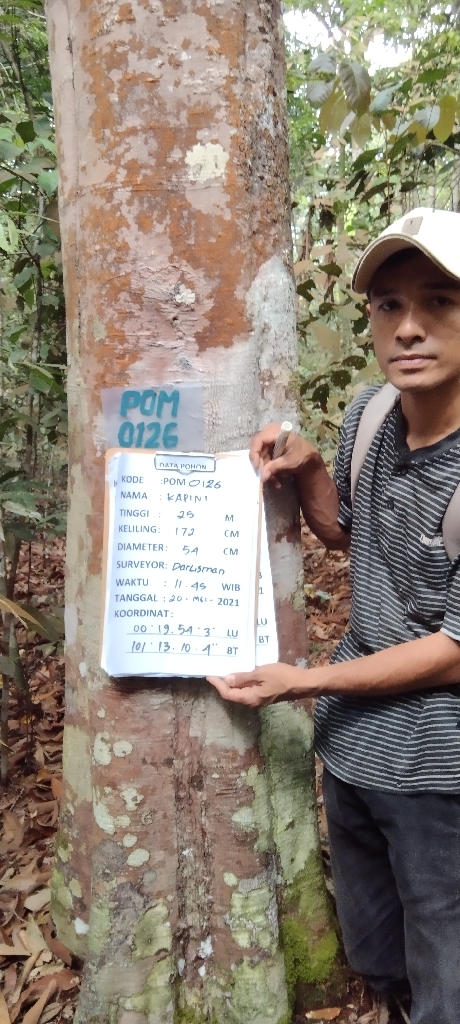 POM
0126
DATA POHON
KODE : POM 0126
NAMA : KAPINI
TINGGI : 25 M
KELILING: 172 CM
DIAMETER: 54 CM
SURVEYOR: Darlisman
WAKTU : 11.45 WIB
TANGGAL : 20-Mei-2021
KOORDINAT:
00°19.54'3" LU
101°13.10.4" BT
LU
BT